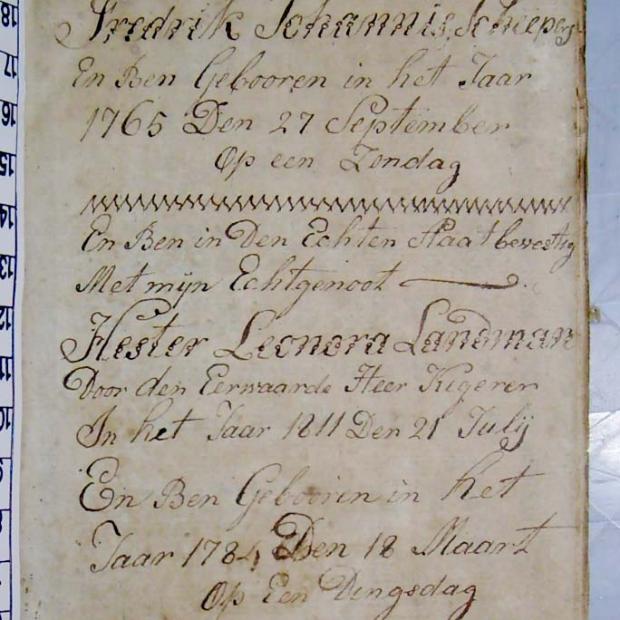 Fredrik Johannis Schepers
En Ben Gebooren in het Jaar
1765 Den 27 September
Op een Zondag
En Ben in Den Echten Staat bevestig
Met mijn Echtgenoot
Hester Leonora Landman
Door den Eerwaarde Heer Kigerer
In het Jaar 1811 Den 21 Julij
En Ben Gebooren in het
Jaar 1784 Den 18 Maart
Op Een Dingsdag
18
17
16
15
14
13
12
11
10